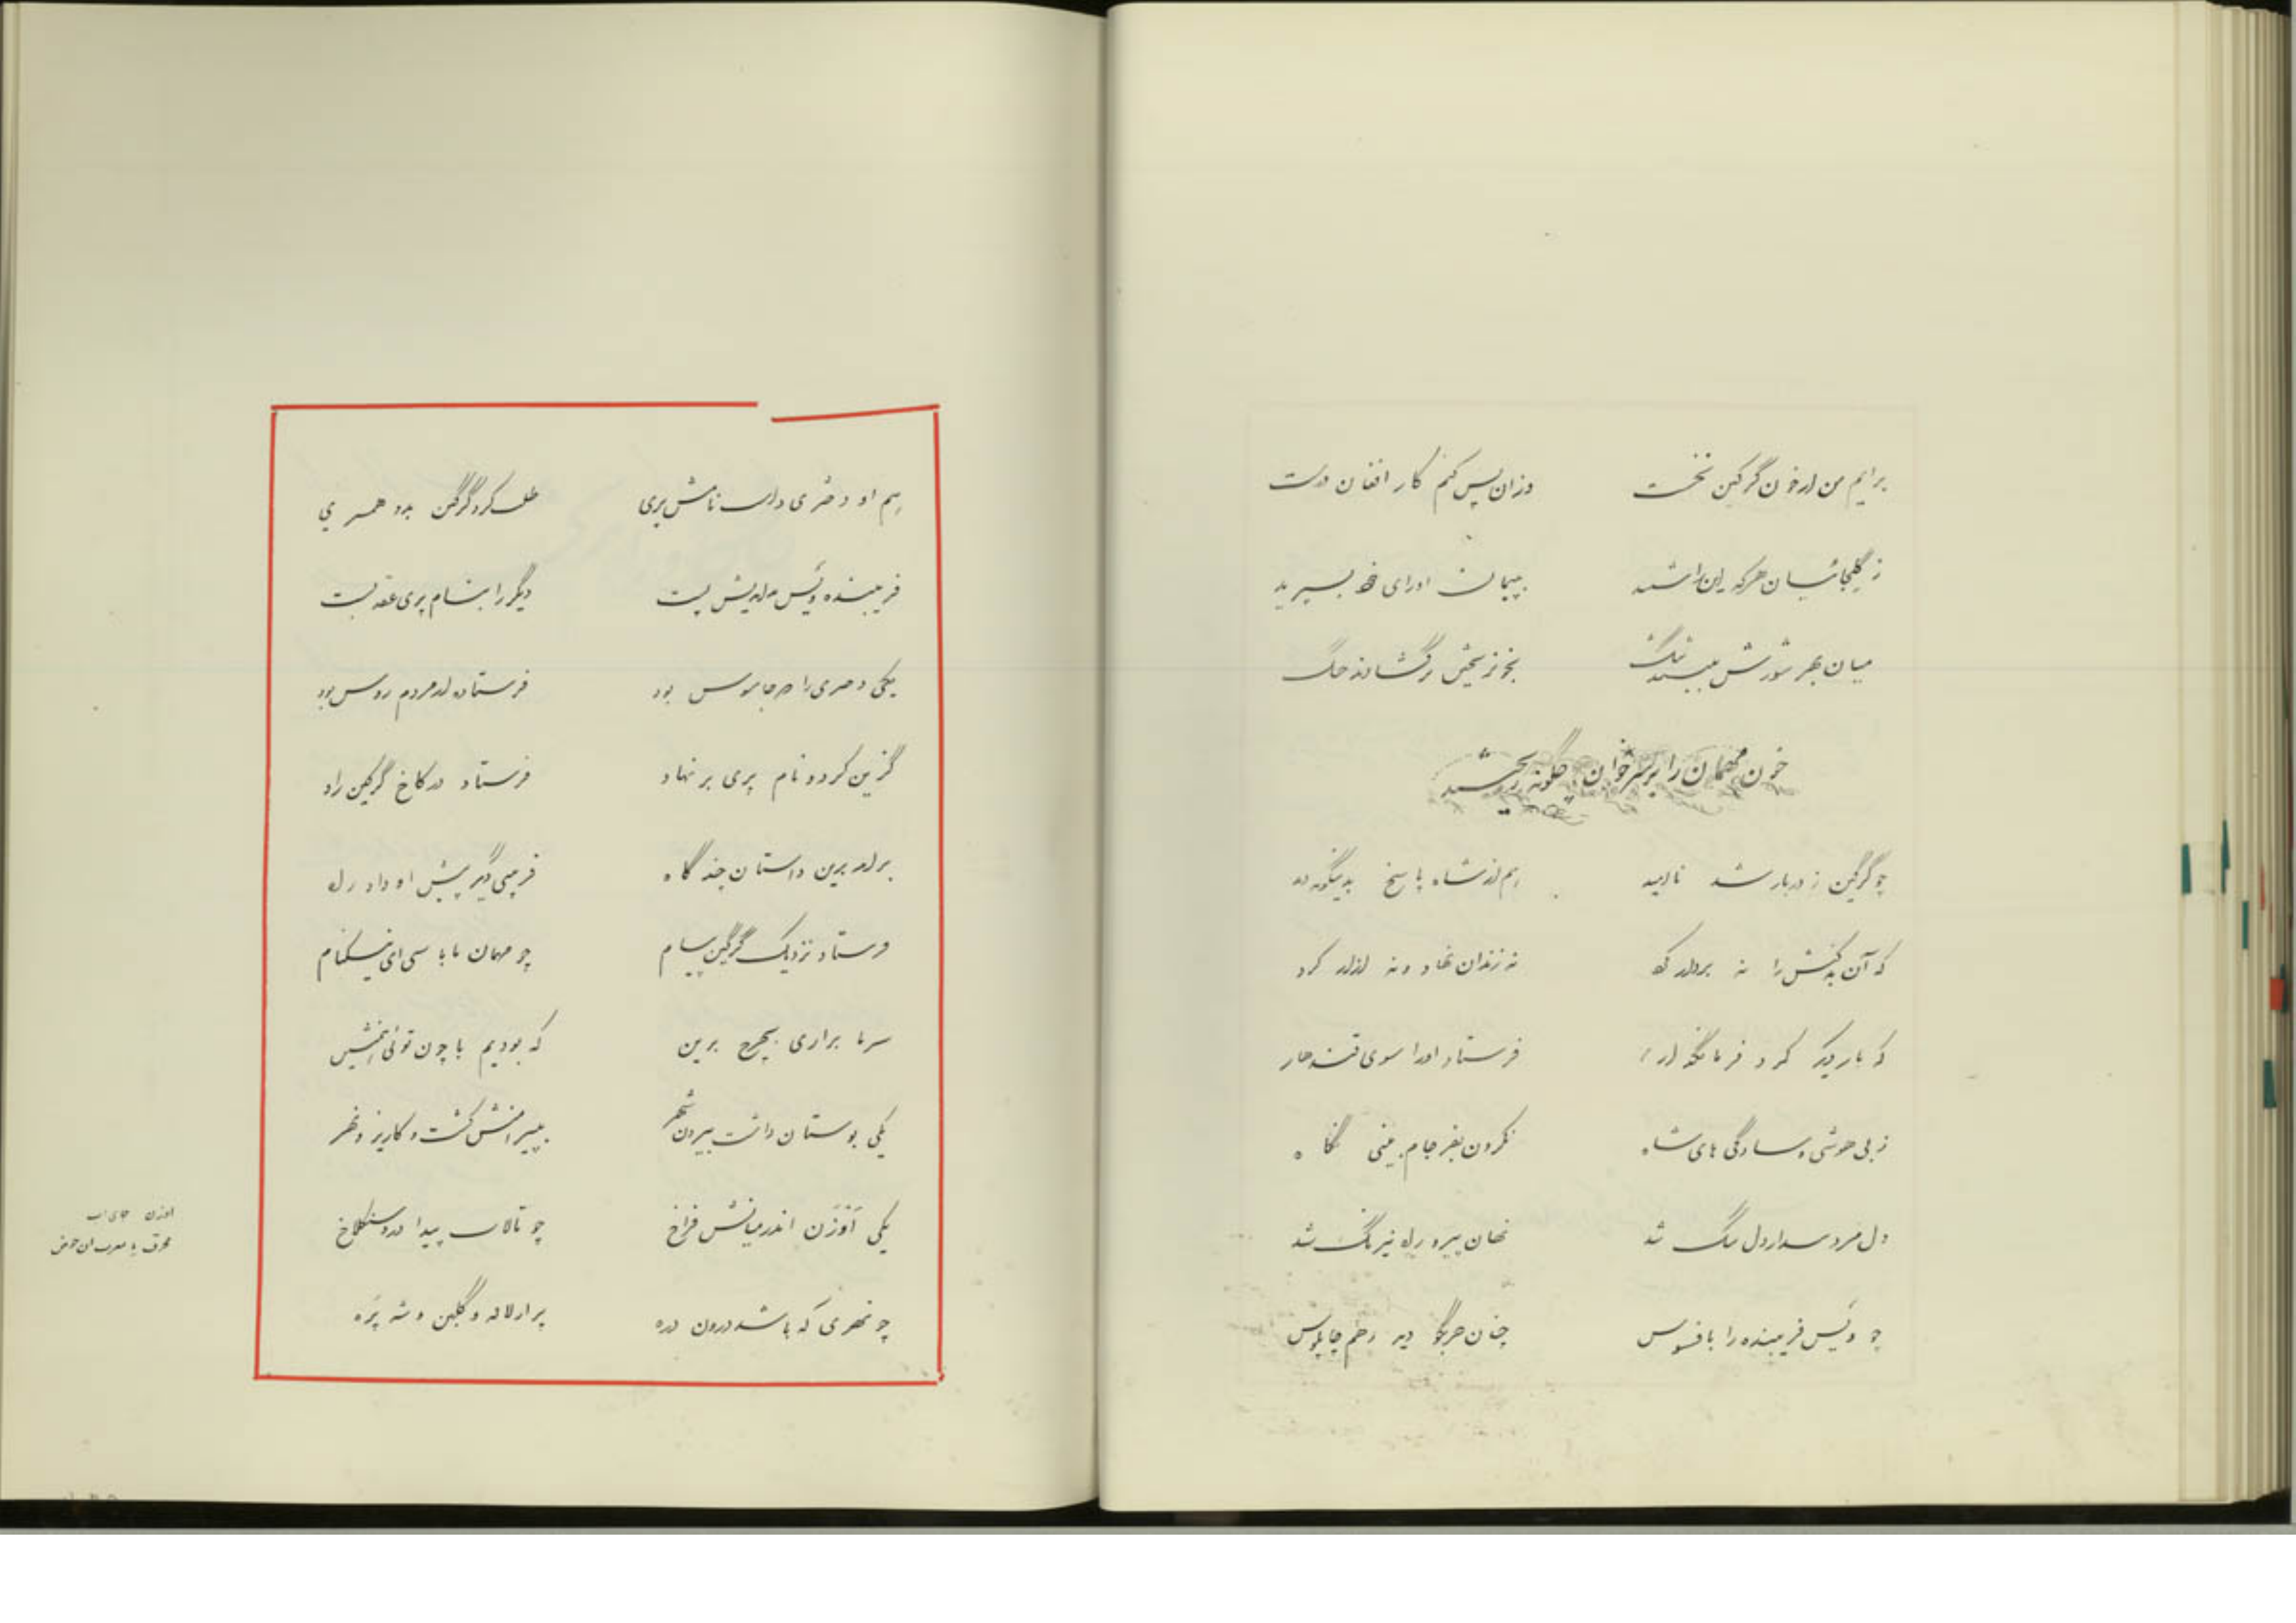 برآیم من از خون گرگین نخست وزان پس کنم کار افغان درست
ز گلیجائیان هرکه این را شنید بپیمان او رای خود بسپرید
میان بهر شورش ببستند تنگ بخونریختن برگشادند چنگ
خون مهمان را بر سر خوان چگونه ریختند
چو گرگین ز دربار شد ناامید هم از شاه پاسخ بدینگونه دید
که آن بدکنش را نه بردار کرد نه زندان نهاد و نه آزار کرد
که بار دگر کرد فرمانگذار فرستاد او را سوی قندهار
ز بی هوشی و سادگی های شاه نکردن بفرجام بینی نگاه
دل مرد سردار دل سنگ شد نهان پیرو راه نیرنگ شد
چو ویس فریبنده را با فسوس چنان چربگو دید و هم چاپلوس
هم او دختری داشت نامش پری طلب کرد گرگین بدو همسری
فریبنده ویس بداندیش پست دیگر را بنام پری عقد بست
یکی دختری را که جاسوس بود فرستاده از مردم روس بود
گزین کرد و نام پری برنهاد فرستاد در کاخ گرگین راد
برآمد برین داستان چندگاه فریبی دگر پیش او داد راه
فرستاد نزدیک گرگین پیام چو مهمان ما باسی ای نیکنام
سر ما برآری بچرخ برین که بودیم با چون توئی همنشین
یکی بوستان داشت بیرون شهر بپیرامنش کشت و کاریز و نهر
یکی آوزن اندر میانش فراخ چو تالاب پیدا در سنگلاخ
چو نهری که باشد درون دره پر از لاله و گلبن و شه پره
اوزن جای آب
معرب آن حوض